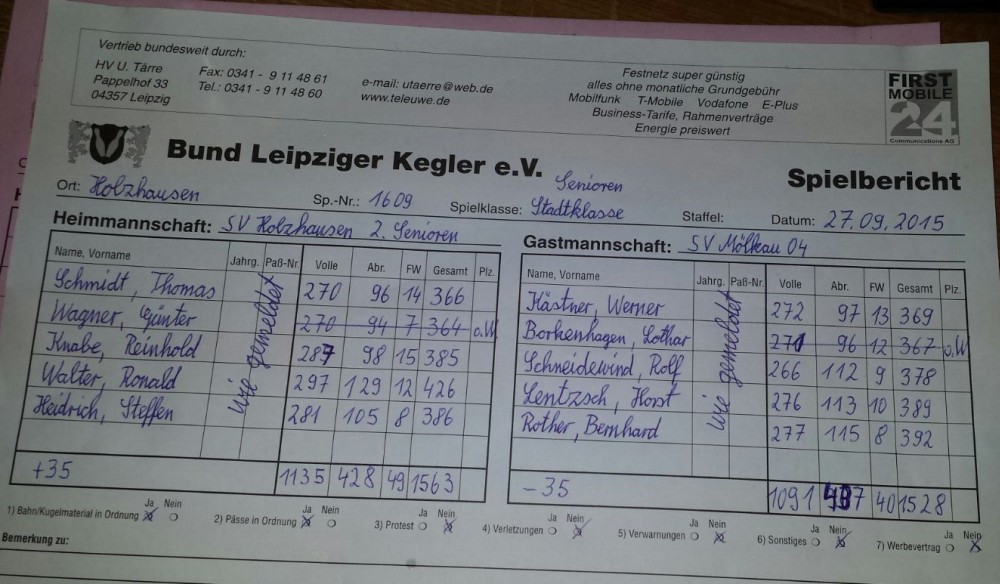 Vertrieb bundesweit durch:
HV U. Tärre
Pappelhof 33
04357 Leipzig
Fax: 0341 - 9 11 48 61
Tel.: 0341 - 9 11 48 60
e-mail: utaerre@web.de
www.teleuwe.de
Festnetz super günstig
alles ohne monatliche Grundgebühr
Mobilfunk T-Mobile Vodafone E-Plus
Business-Tarife, Rahmenverträge
Energie preiswert
FIRST
MOBILE
24
Communications AG
Bund Leipziger Kegler e.V.
Spielbericht
Senioren
Ort: Holzhausen Sp.-Nr.: 1609 Spielklasse: Stadtklasse Staffel: Datum: 27.09.2015
Heimmannschaft: SV Holzhausen 2. Senioren
Name, Vorname Jahrg. Paß-Nr. Volle Abr. FW Gesamt Plz.
Schmidt, Thomas 270 96 14 366
Wagner, Günter 270 94 7 364 o.W
Knabe, Reinhold 287 98 15 385
Walter, Ronald 297 129 12 426
Heidrich, Steffen 281 105 8 386
wie gemeldet
+35 1135 428 49 1563
Gastmannschaft: SV Mölkau 04
Name, Vorname Jahrg. Paß-Nr. Volle Abr. FW Gesamt Plz.
Kästner, Werner 272 97 13 369
Borkenhagen, Lothar 271 96 12 367 o.W
Schneidewind, Rolf 266 112 9 378
Lentzsch, Horst 276 113 10 389
Rother, Bernhard 277 115 8 392
wie gemeldet
-35 1091 437 40 1528
1) Bahn/Kugelmaterial in Ordnung Ja Nein
2) Pässe in Ordnung Ja Nein
3) Protest Ja Nein
4) Verletzungen Ja Nein
5) Verwarnungen Ja Nein
6) Sonstiges Ja Nein
7) Werbevertrag Ja Nein
Bemerkung zu: